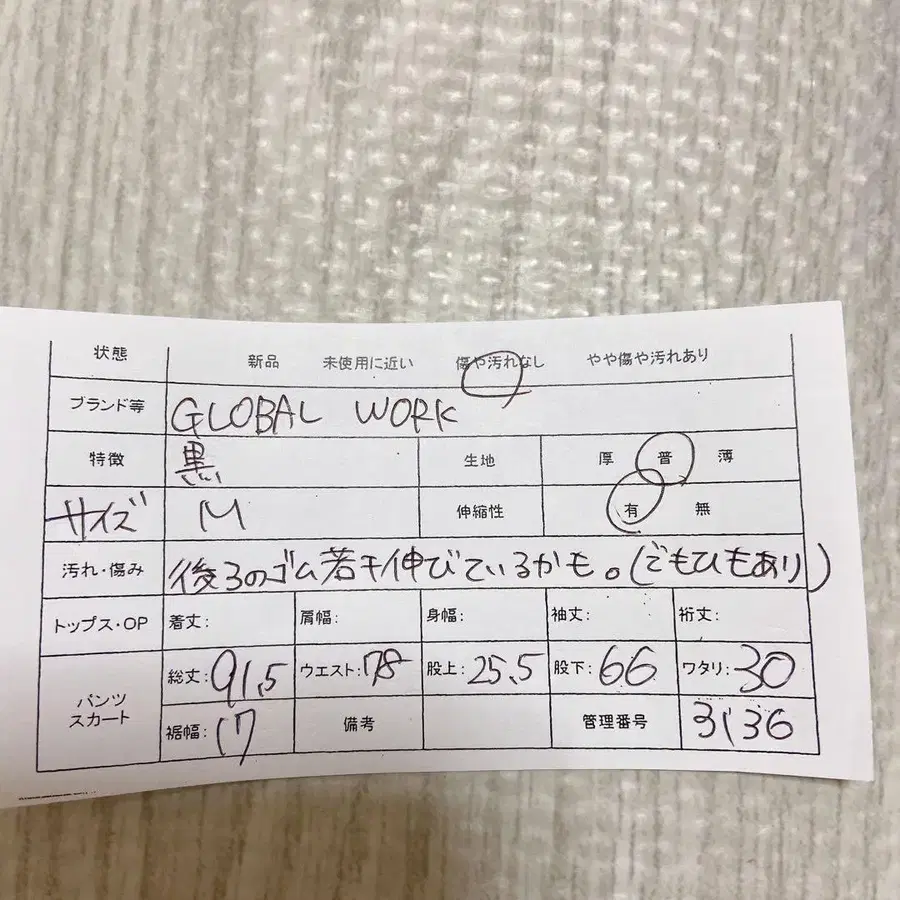 状態 新品 未使用に近い 傷や汚れなし やや傷や汚れあり
ブランド等 GLOBAL WORK
特徴 黒 生地 厚 普 薄
サイズ M 伸縮性 有 無
汚れ・傷み 後ろのゴム若干伸びているかも。(でもひもあり)
トップス・OP 着丈: 肩幅: 身幅: 袖丈: 裄丈:
パンツ スカート 総丈: 91.5 ウエスト: 78 股上: 25.5 股下: 66 ワタリ: 30
裾幅: 17 備考 管理番号 3136